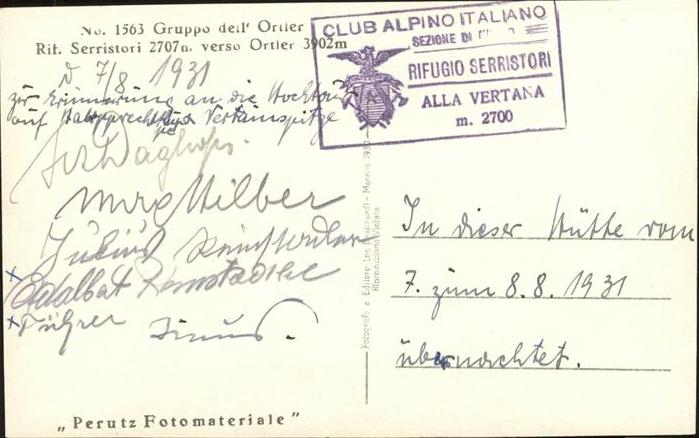 No. 1563 Gruppo dell' Ortler
Rif. Serristori 2707m. verso Ortler 3902m
CLUB ALPINO ITALIANO
SEZIONE DI
RIFUGIO SERRISTORI
ALLA VERTANA
m. 2700
d 7/8 1931
zur Erinnerung an die Hochtour
auf Vertainspitze
Max Hilber
Julius
Adalbert
Führer
In dieser Hütte vom
7. zum 8.8.1931
übernachtet.
Fotografo e Editore Leo
Riproduzione Vietata
„Perutz Fotomateriale"